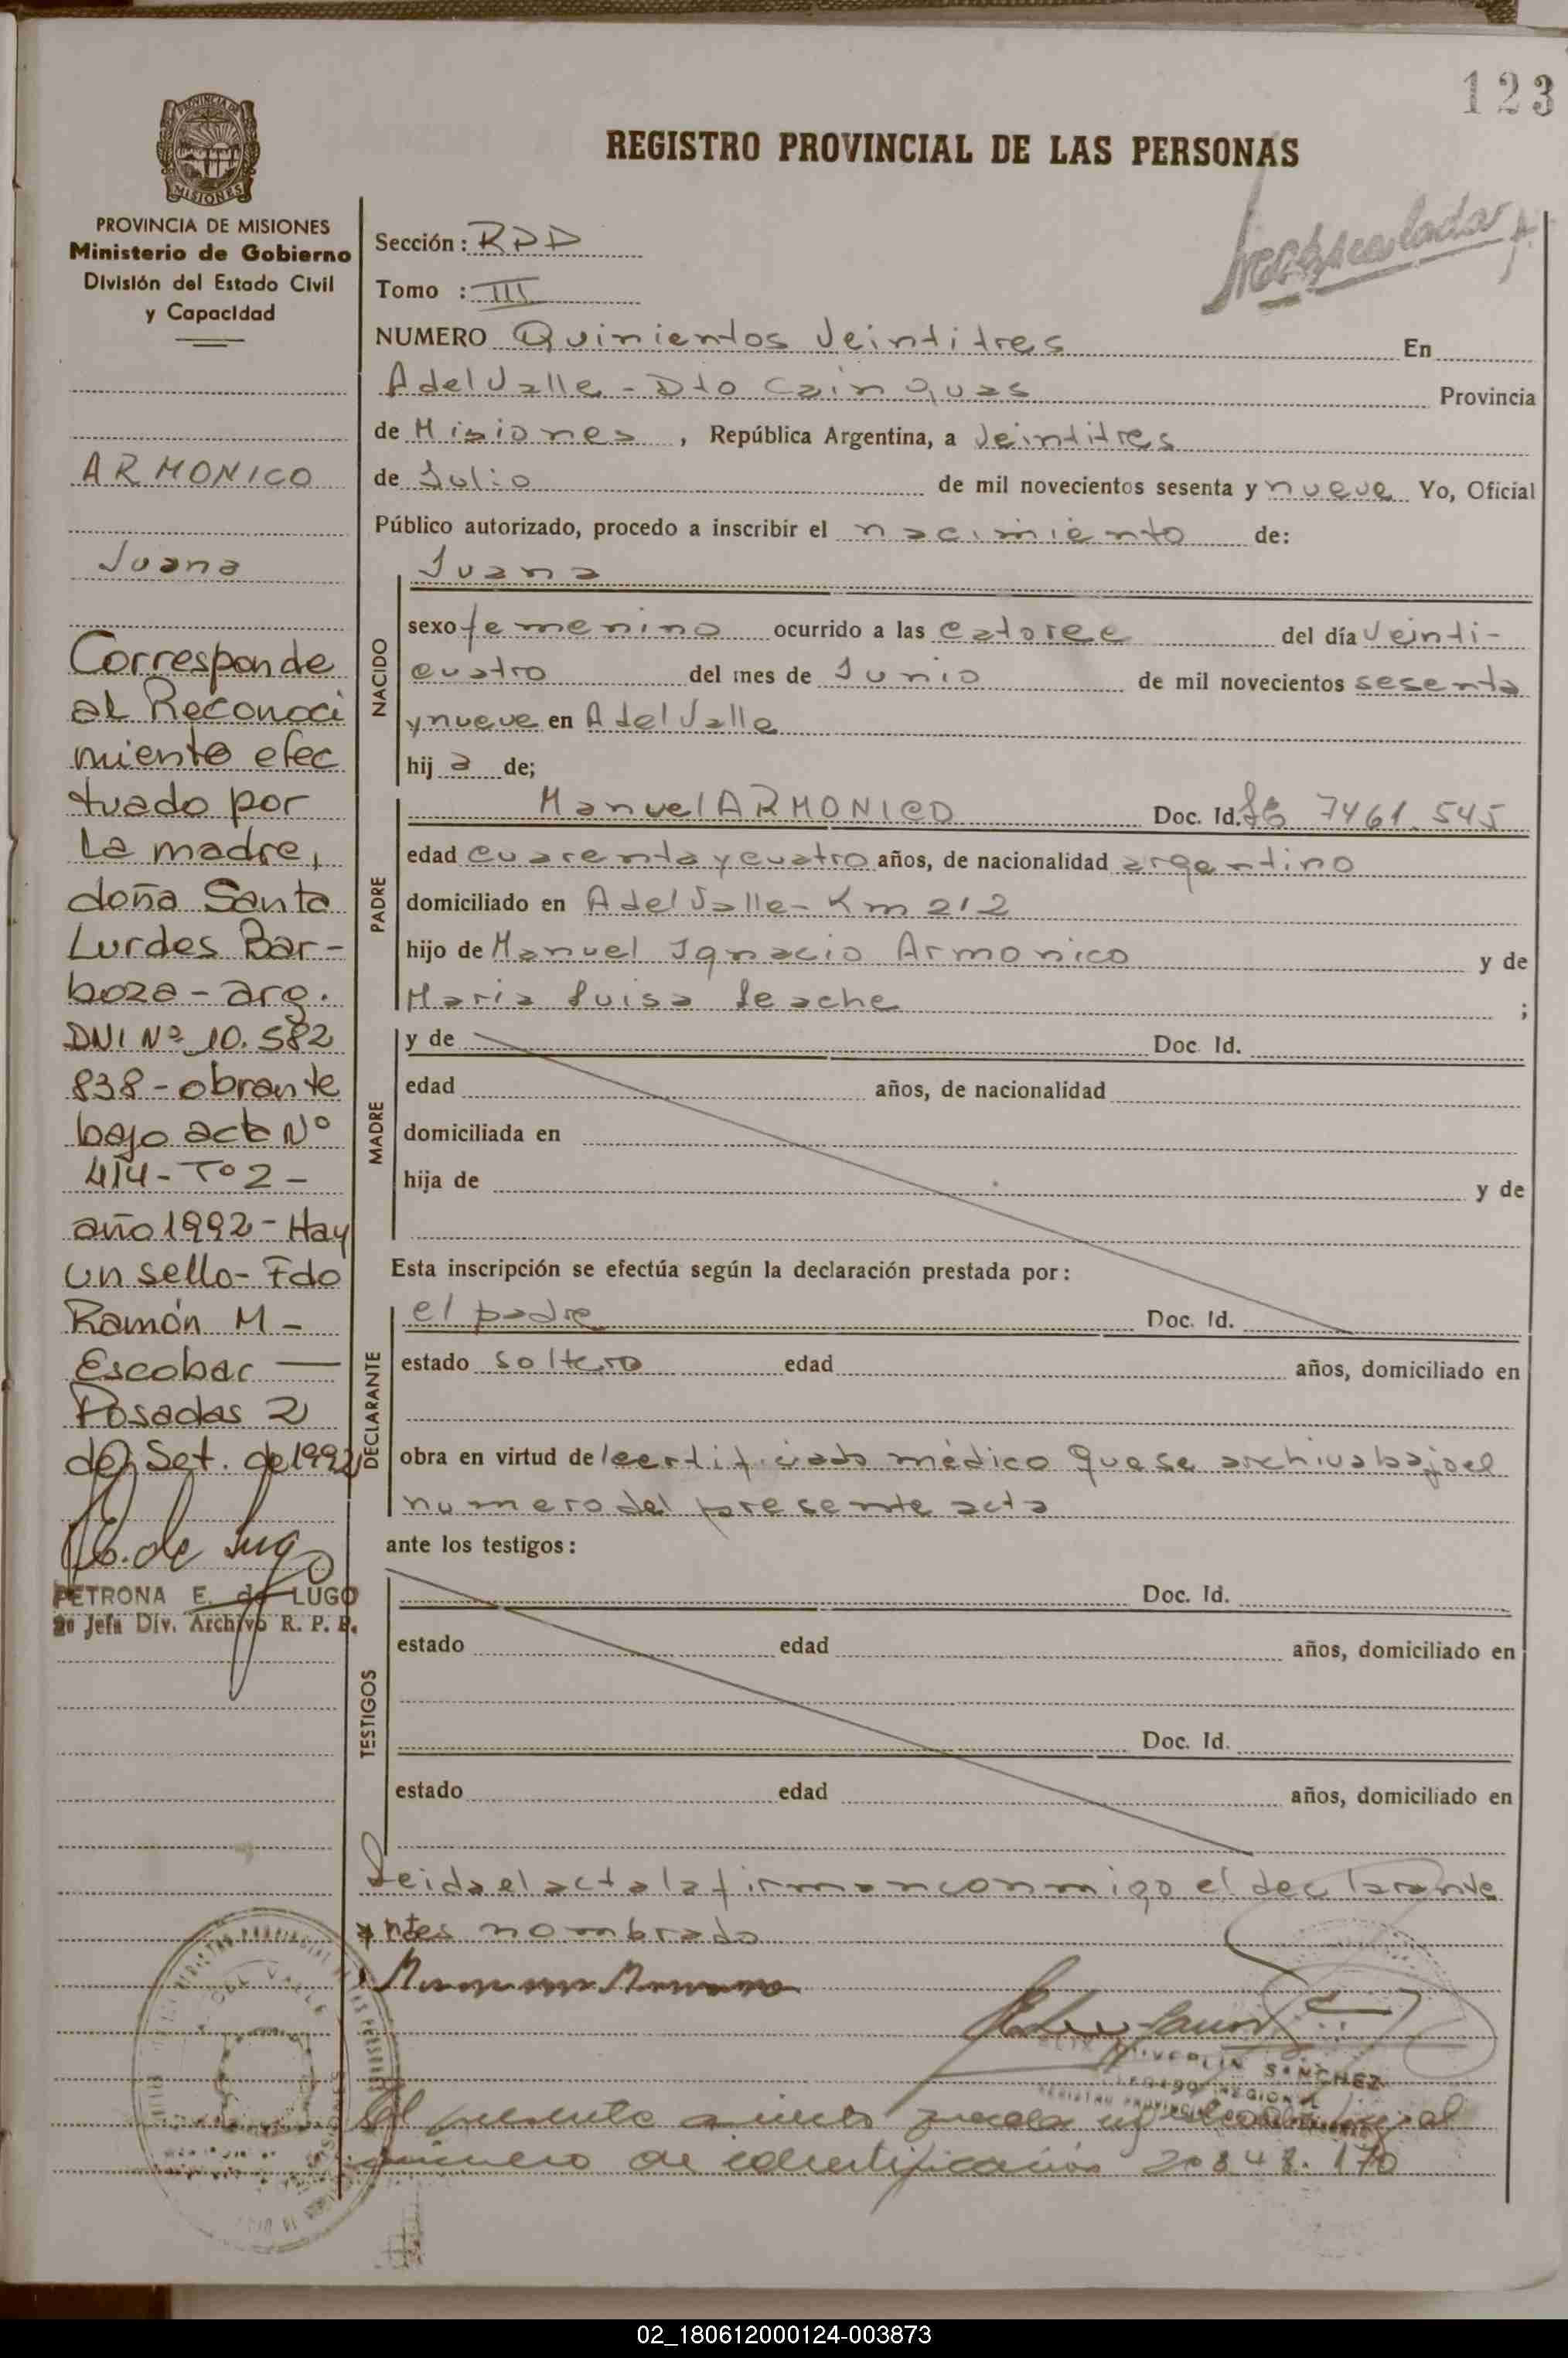 123
REGISTRO PROVINCIAL DE LAS PERSONAS
PROVINCIA DE
MISIONES
PROVINCIA DE MISIONES
Ministerio de Gobierno
División del Estado Civil
y Capacidad
ARMONICO
Juana
Corresponde
al Reconoci
miento efec
tuado por
La madre,
doña Santa
Lurdes Bar-
boza - arg.
DNI Nº 10.582
838 - obrante
bajo acta Nº
414 - Tº 2 -
año 1992 - Hay
un sello - Fdo
Ramón M -
Escobar —
Posadas 2
de Set. de 1992
PETRONA E. de LUGO
2º Jefa Div. Archivo R. P. P.
Sección: RDD
Tomo : III
NUMERO Quinientos Veintitres En
A del Valle - Dto Cainguas Provincia
de Misiones, República Argentina, a Veintitres
de Julio de mil novecientos sesenta y nueve Yo, Oficial
Público autorizado, procedo a inscribir el nacimiento de:
NACIDO
Juana
sexo femenino ocurrido a las catorce del día Veinti-
cuatro del mes de Junio de mil novecientos sesenta
y nueve en A del Valle
hij a de;
PADRE
Manuel ARMONICO Doc. Id. 7461.545
edad cuarenta y cuatro años, de nacionalidad argentino
domiciliado en A del Valle - Km 212
hijo de Manuel Ignacio Armonico y de
Maria Luisa Leache ;
MADRE
y de Doc. Id.
edad años, de nacionalidad
domiciliada en
hija de y de
Esta inscripción se efectúa según la declaración prestada por:
DECLARANTE
el padre Doc. Id.
estado soltero edad años, domiciliado en
obra en virtud del certificado médico que se archiva bajo el
numero del presente acta
ante los testigos:
TESTIGOS
Doc. Id.
estado edad años, domiciliado en
Doc. Id.
estado edad años, domiciliado en
Leida el acta la firman conmigo el declarante
antes nombrado
SANCHEZ
número de identificación 20.848.170
02_180612000124-003873